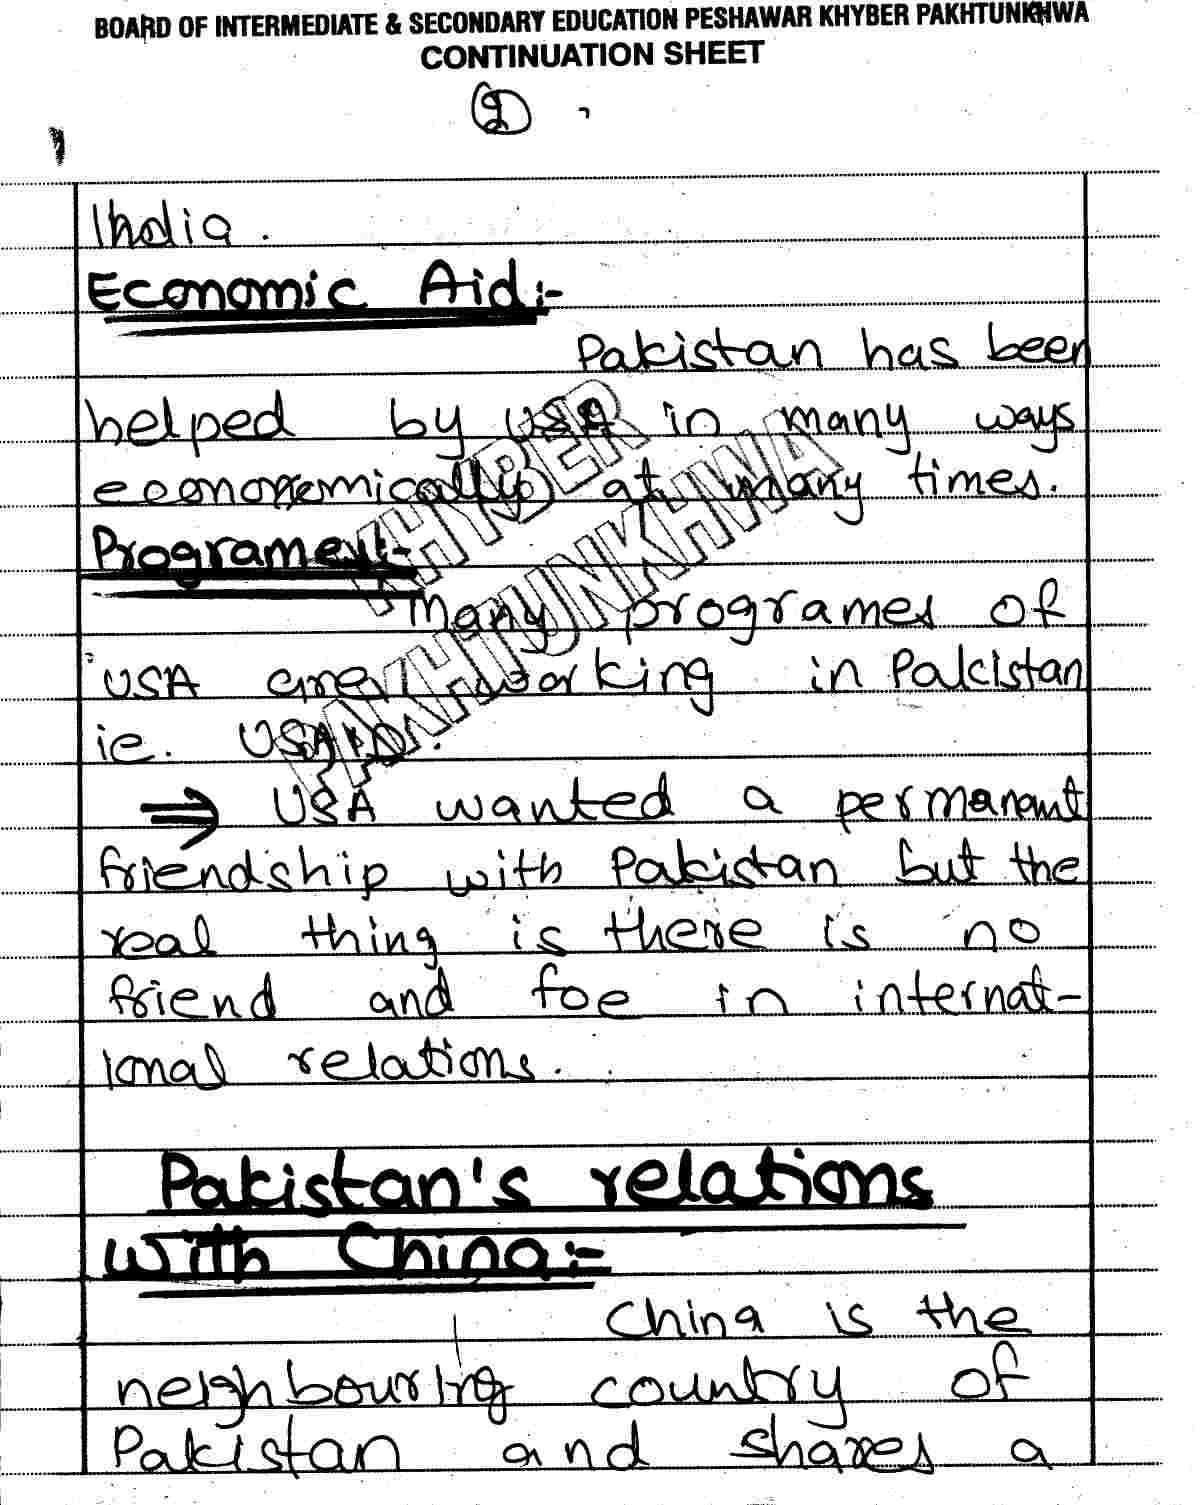 BOARD OF INTERMEDIATE & SECONDARY EDUCATION PESHAWAR KHYBER PAKHTUNKHWA
CONTINUATION SHEET
India.
Economic Aid:-
Pakistan has been
helped by USA in many ways
economemically at many times.
Programes:-
Many programes of
USA are working in Pakistan
ie. USAID.
⇒ USA wanted a permanant
friendship with Pakistan but the
real thing is there is no
friend and foe in internat-
ional relations.
Pakistan's relations
with China:-
China is the
neighbouring country of
Pakistan and shares a
KHYBER
PAKHTUNKHWA